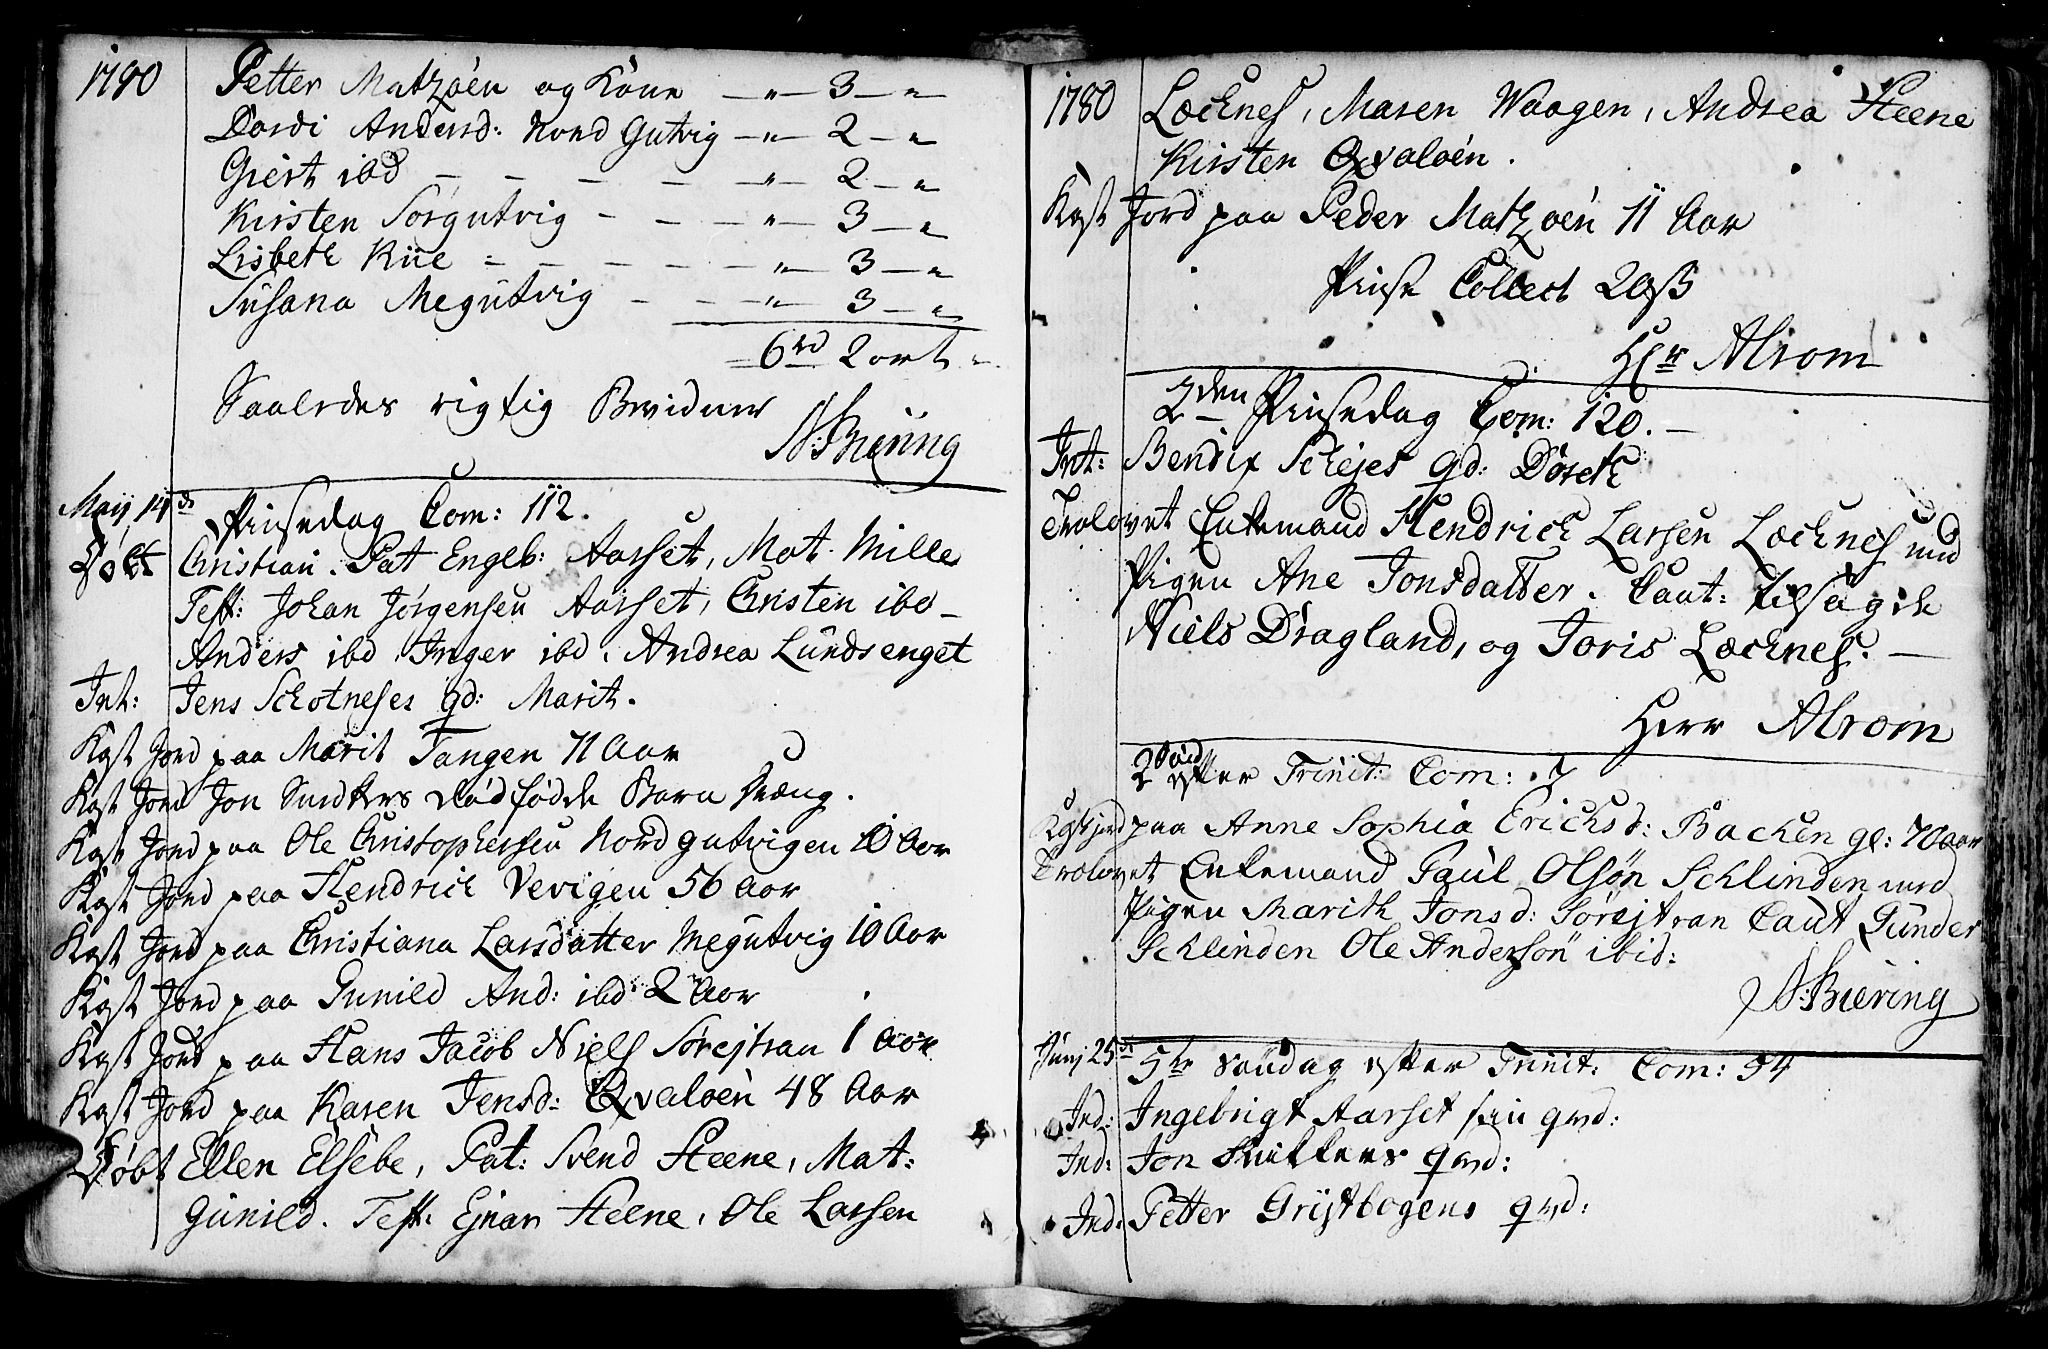 1780
Petter Matzøen og Kone — " — 3 — "
Dordi Andersd: Nord Gutvig — " — 2 — "
Giert ibd — — — — " — 2 — "
Kirsten Sørgutvig — — — " — 3 — "
Lisbeth Kiie — — — — — " — 3 — "
Susana Megutvig — — — " — 3 — "
6 rd 2 ort "
Saaledes rigtig Bevidner
N: Biering
May 14 d Pinsedag Com: 112.
Døbt Christian. Pat Engeb: Aarset, Mat. Mille
Test: Johan Jørgensen Aarset, Christen ibd
Anders ibd, Inger ibd, Andrea Lundsenget
Int: Jens Schotneses qd: Marit.
Kast Jord paa Marit Tangen 71 Aar
Kast Jord Jon dødfødde Barn
Kast Jord paa Ole Christophersen Nordgutvigen 10 Aar
Kast Jord paa Hendrick Vevigen 56 Aar
Kast Jord paa Christiana Larsdatter Megutvig 10 Aar
Kast Jord paa Gunild And: ibd 2 Aar
Kast Jord paa Hans Jacob Niels Sørejtran 1 Aar
Kast Jord paa Karen Jensd: Qvaløen 48 Aar
Døbt Ellen Elsebe, Pat: Svend Steene, Mat:
Gunild. Test: Ejnar Steene, Ole Larsen
1780 Lecknes, Maren Waagen, Andrea Steene
Kirsten Qvaløen.
Kast Jord paa Peder Matzøen 11 Aar
Pinse Collect 20 ß
Hr Alrom
2den Pinsedag Com: 120. —
Int: Bendix Schejes qd: Doreth
Trolovet Enkemand Hendrich Larsen Lecknes med
Pigen Ane Jonsdatter. Caut:
Niels Dragland, og Joris Lecknes. —
Herr Alrom
2 Søid efter Trinit: Com: 7
Kast jord paa Anne Sophia Erichsd: Backen gl: 70 aar
Trolovet Enkemand Paul Olsøn Schlinden med
Pigen Marith Jonsd: Sørejtran Caut Gunder
Schlinden Ole Andersøn ibid:
N: Biering
Junj 25 d 5te Søndag efter Trinit: Com: 94
Ind: Ingebrigt Aarset sin qvd:
Ind: Jon qvd:
Ind: Petter Grijtbogens qvd: